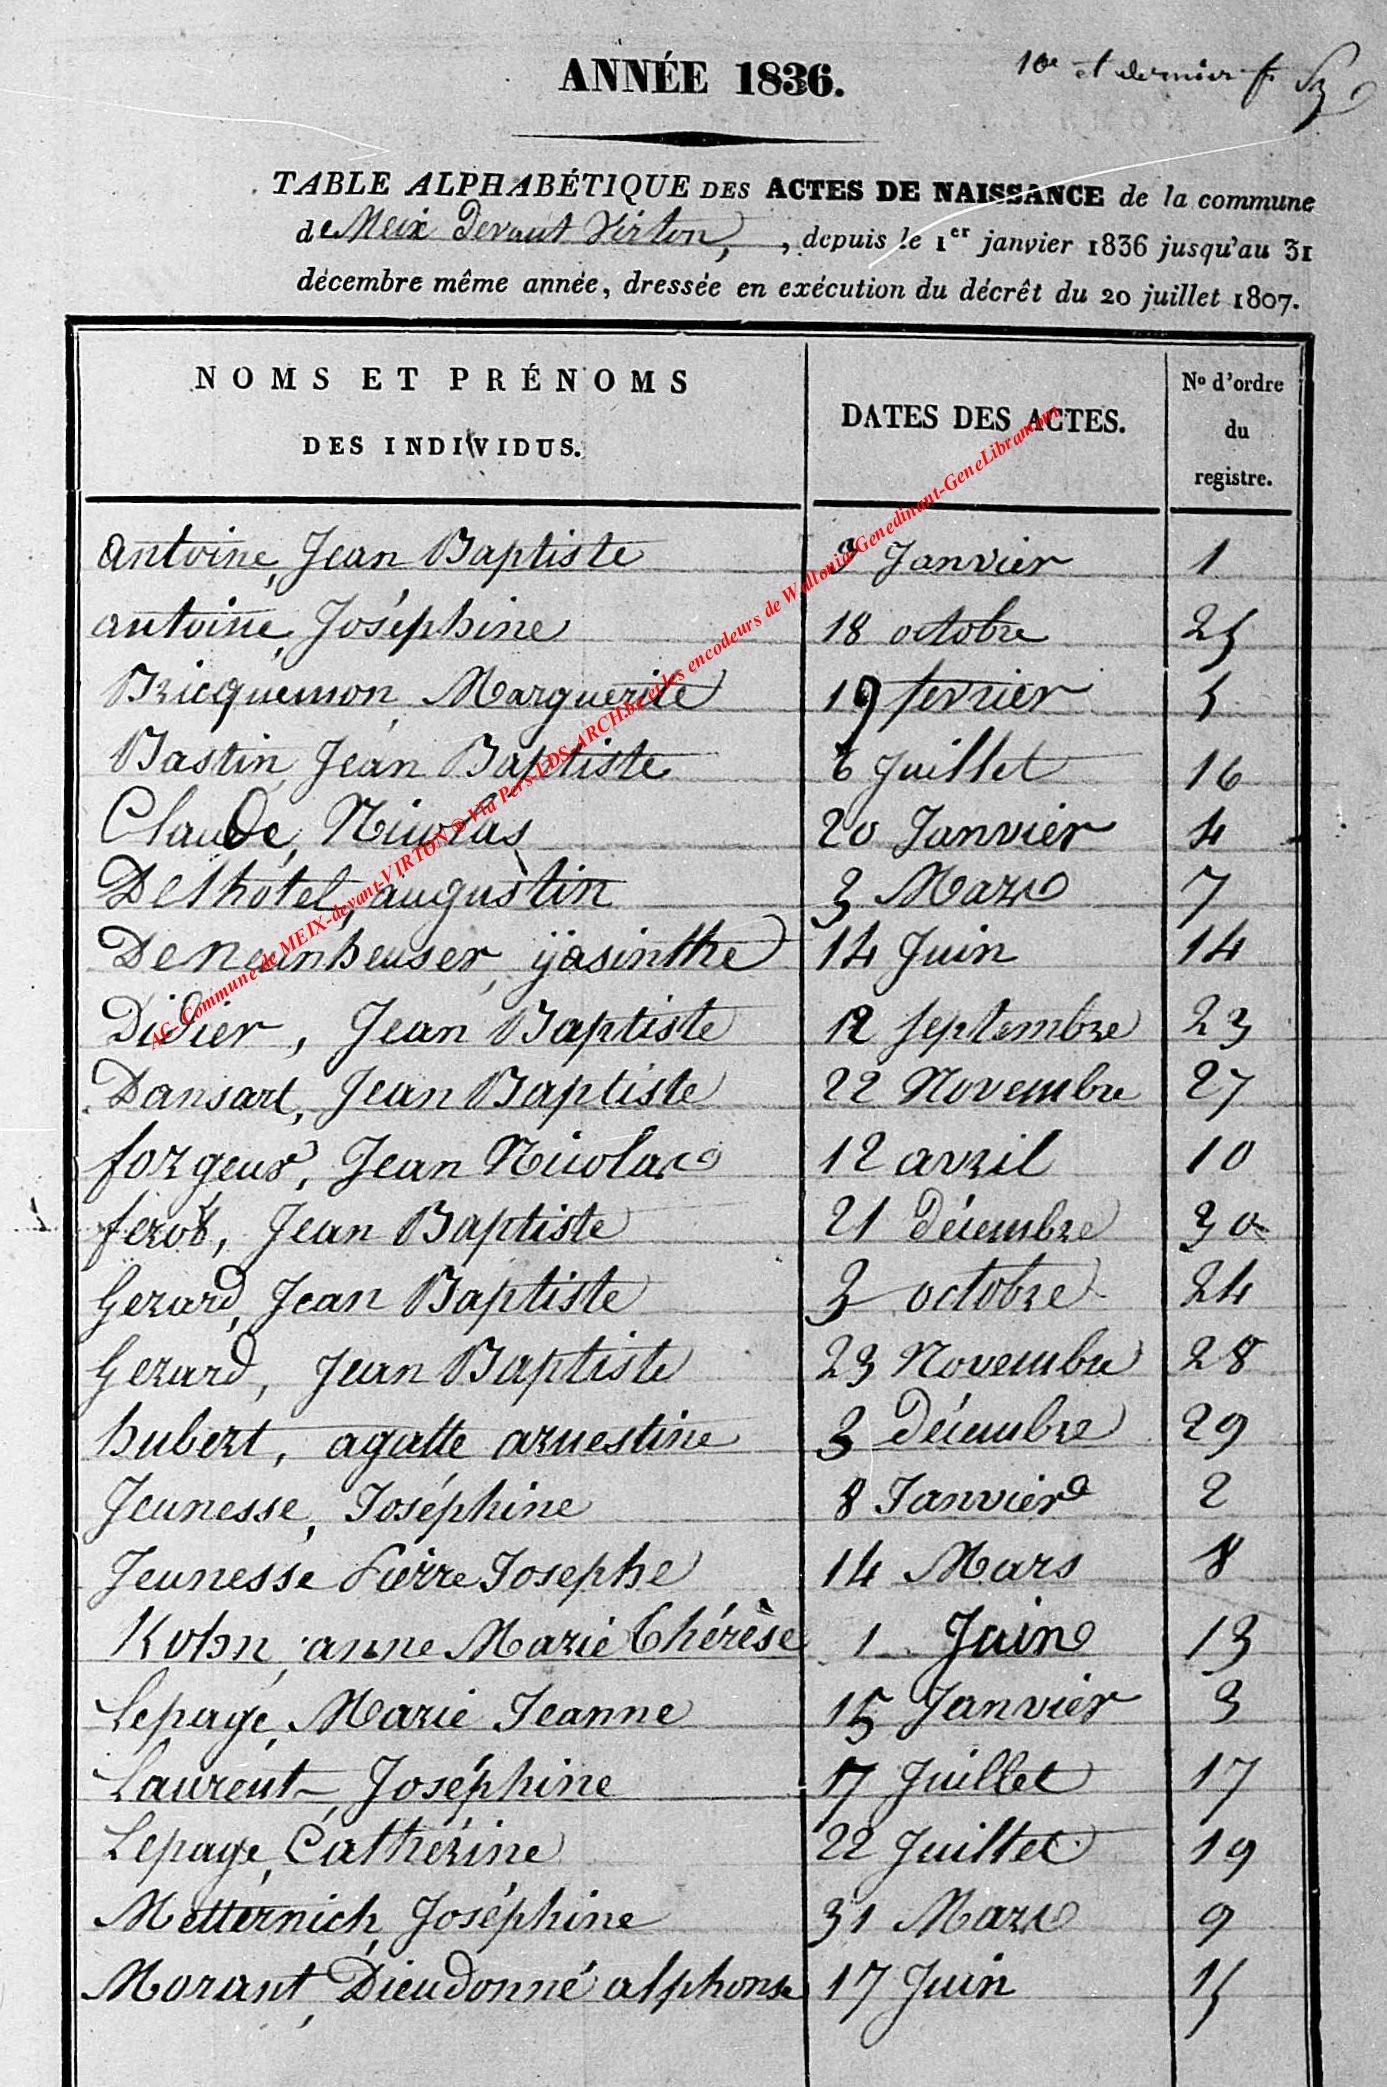 ANNÉE 1836.
10e et dernier f.
TABLE ALPHABÉTIQUE DES ACTES DE NAISSANCE de la commune
de Meix Devant Virton, , depuis le 1er janvier 1836 jusqu'au 31
décembre même année, dressée en exécution du décrêt du 20 juillet 1807.
NOMS ET PRÉNOMS DES INDIVIDUS. DATES DES ACTES. No d'ordre du registre.
antoine, Jean Baptiste 3 Janvier 1
antoine, Joséphine 18 octobre 25
Bricquemon, Marguerite 19 fevrier 5
Bastin, Jean Baptiste 6 Juillet 16
Claude, Nicolas 20 Janvier 4
Delhotel, augustin 3 Mars 7
Deneunheuser, ÿasinthe 14 Juin 14
Didier, Jean Baptiste 12 septembre 23
Dansart, Jean Baptiste 22 Novembre 27
forgeur, Jean Nicolas 12 avril 10
ferot, Jean Baptiste 21 Décembre 30
Gerard, Jean Baptiste 3 octobre 24
Gerard, Jean Baptiste 23 Novembre 28
hubert, agatte arnestine 3 Décembre 29
Jeunesse, Joséphine 8 Janvier 2
Jeunesse Pierre Josephe 14 Mars 8
Kohn, anne Marie Thérèse 1 Juin 13
Lepage, Marie Jeanne 15 Janvier 3
Laurent, Joséphine 17 Juillet 17
Lepage, Catherine 22 Juillet 19
Metternich, Joséphine 31 Mars 9
Morant, Dieudonné alphonse 17 Juin 15
AC- Commune de MEIX-devant-VIRTON ® Via Pers-LDS-ARCH.be et les encodeurs de Wallonia-Genedinant-GeneLibramont